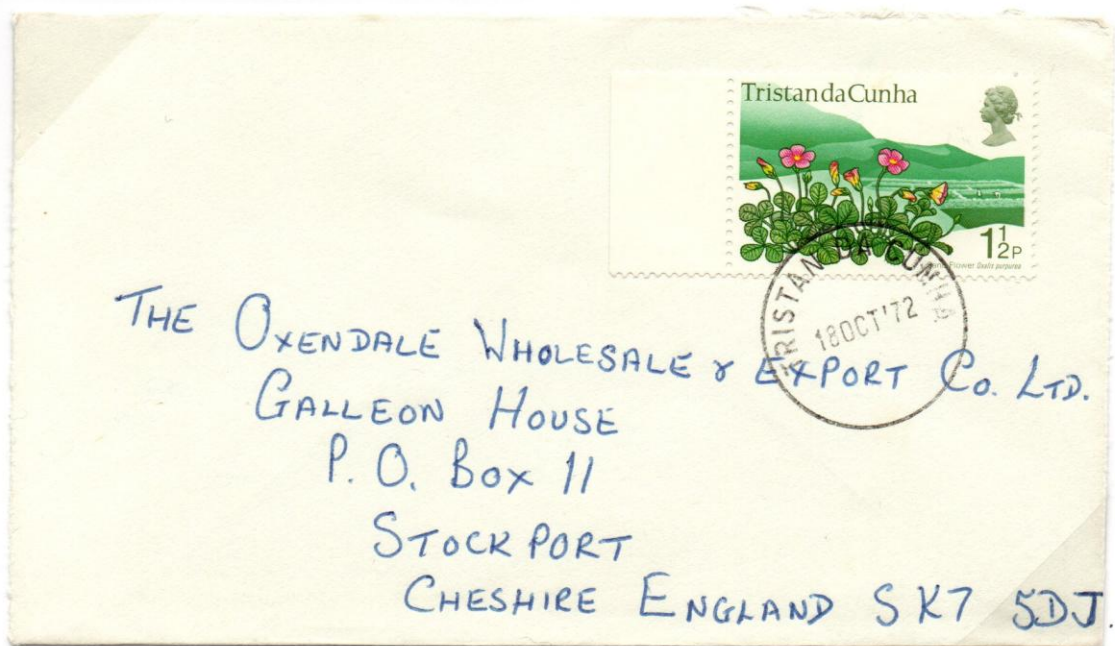 Tristan da Cunha
1½P
Flower Oxalis purpurea
TRISTAN DA CUNHA
18 OCT '72
THE OXENDALE WHOLESALE & EXPORT CO. LTD.
GALLEON HOUSE
P. O. BOX 11
STOCKPORT
CHESHIRE ENGLAND SK7 5DJ.